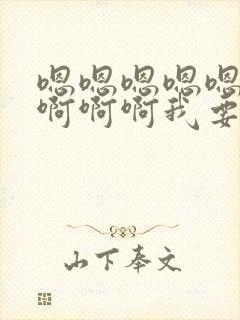 嗯嗯嗯嗯嗯
啊啊啊我要
山下奉文